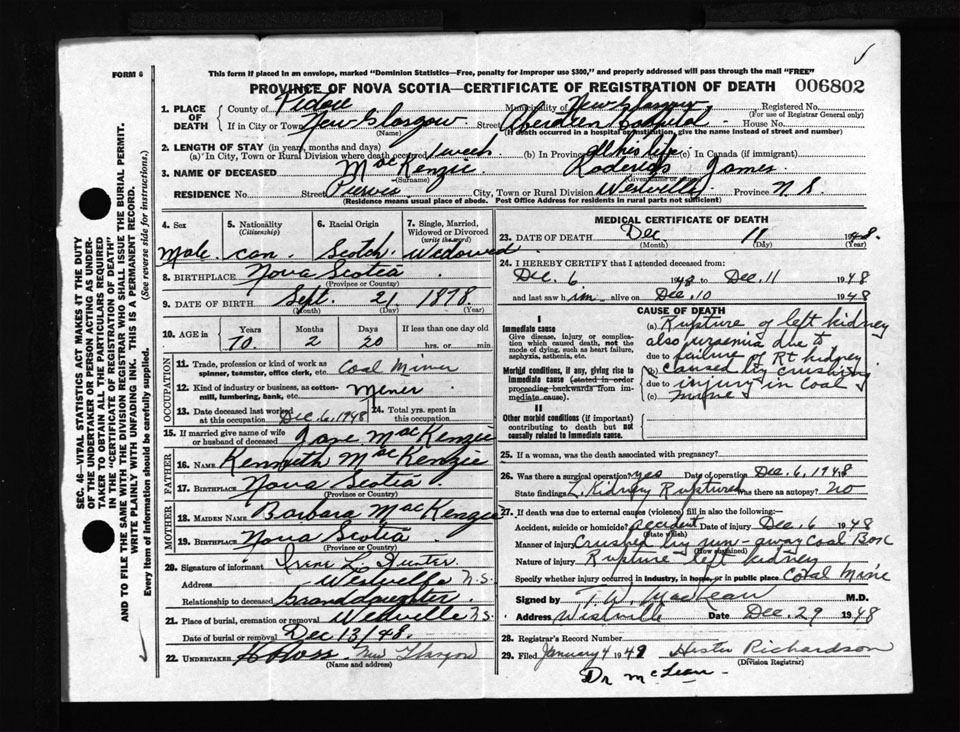 FORM 6
This form if placed in an envelope, marked "Dominion Statistics—Free, penalty for improper use $300," and properly addressed will pass through the mail "FREE"
PROVINCE OF NOVA SCOTIA—CERTIFICATE OF REGISTRATION OF DEATH 006802
1. PLACE OF DEATH
County of Pictou Municipality of New Glasgow Registered No.
(For use of Registrar General only)
If in City or Town New Glasgow Street Aberdeen Hospital House No.
(Name) (If death occurred in a hospital or institution, give the name instead of street and number)
2. LENGTH OF STAY (in years, months and days)
(a) In City, Town or Rural Division where death occurred 1 week (b) In Province all his life (c) In Canada (if immigrant)
3. NAME OF DECEASED MacKenzie James
(Surname)
RESIDENCE No. Street City, Town or Rural Division Westville Province N.S.
(Residence means usual place of abode. Post Office Address for residents in rural parts not sufficient)
4. Sex 5. Nationality (Citizenship) 6. Racial Origin 7. Single, Married, Widowed or Divorced (write the word)
Male Can. Scotch Widowed
8. BIRTHPLACE Nova Scotia
(Province or Country)
9. DATE OF BIRTH Sept. 21. 1878.
(Month) (Day) (Year)
10. AGE in Years Months Days If less than one day old
70. 2 20 hrs. or min.
OCCUPATION
11. Trade, profession or kind of work as spinner, teamster, office clerk, etc. Coal Miner
12. Kind of industry or business, as cotton-mill, lumbering, bank, etc.
13. Date deceased last worked at this occupation Dec. 6, 1948 14. Total yrs. spent in this occupation
15. If married give name of wife or husband of deceased Jane MacKenzie
FATHER
16. NAME Kenneth MacKenzie
17. BIRTHPLACE Nova Scotia
(Province or Country)
MOTHER
18. MAIDEN NAME Barbara MacKenzie
19. BIRTHPLACE Nova Scotia
(Province or Country)
20. Signature of informant Irene L. Hunter
Address Westville N.S.
Relationship to deceased Granddaughter
21. Place of burial, cremation or removal Westville N.S.
Date of burial or removal Dec 13/48.
22. UNDERTAKER New Glasgow
(Name and address)
MEDICAL CERTIFICATE OF DEATH
23. DATE OF DEATH Dec 11 1948.
(Month) (Day) (Year)
24. I HEREBY CERTIFY that I attended deceased from:
Dec. 6 1948 to Dec. 11 1948
and last saw him alive on Dec. 10 1948
CAUSE OF DEATH
I
Immediate cause
Give disease, injury or complication which caused death, not the mode of dying, such as heart failure, asphyxia, asthenia, etc.
Morbid conditions, if any, giving rise to immediate cause (stated in order proceeding backwards from immediate cause).
II
Other morbid conditions (if important) contributing to death but not causally related to immediate cause.
(a) Rupture of left kidney
also uraemia due to
due to failure of Rt kidney
(b) caused by crushing
due to injury in Coal
(c) mine
25. If a woman, was the death associated with pregnancy?
26. Was there a surgical operation? yes Date of operation Dec. 6, 1948
State findings L. Kidney Ruptured Was there an autopsy? No
27. If death was due to external causes (violence) fill in also the following:
Accident, suicide or homicide? accident Date of injury Dec. 6 1948
(State which)
Manner of injury Crushed by run-away Coal Box
(How sustained)
Nature of injury Rupture left kidney
Specify whether injury occurred in industry, in home, or in public place Coal Mine
Signed by T. W. MacLean M.D.
Address Westville Date Dec. 29 1948
28. Registrar's Record Number
29. Filed January 4 1949 Hester Richardson
(Division Registrar)
Dr McLean
SEC. 46—VITAL STATISTICS ACT MAKES IT THE DUTY
OF THE UNDERTAKER OR PERSON ACTING AS UNDER-
TAKER TO OBTAIN ALL THE PARTICULARS REQUIRED
IN THE "CERTIFICATE OF REGISTRATION OF DEATH"
AND TO FILE THE SAME WITH THE DIVISION REGISTRAR WHO SHALL ISSUE THE BURIAL PERMIT.
WRITE PLAINLY WITH UNFADING INK. THIS IS A PERMANENT RECORD.
Every item of information should be carefully supplied. (See reverse side for instructions.)